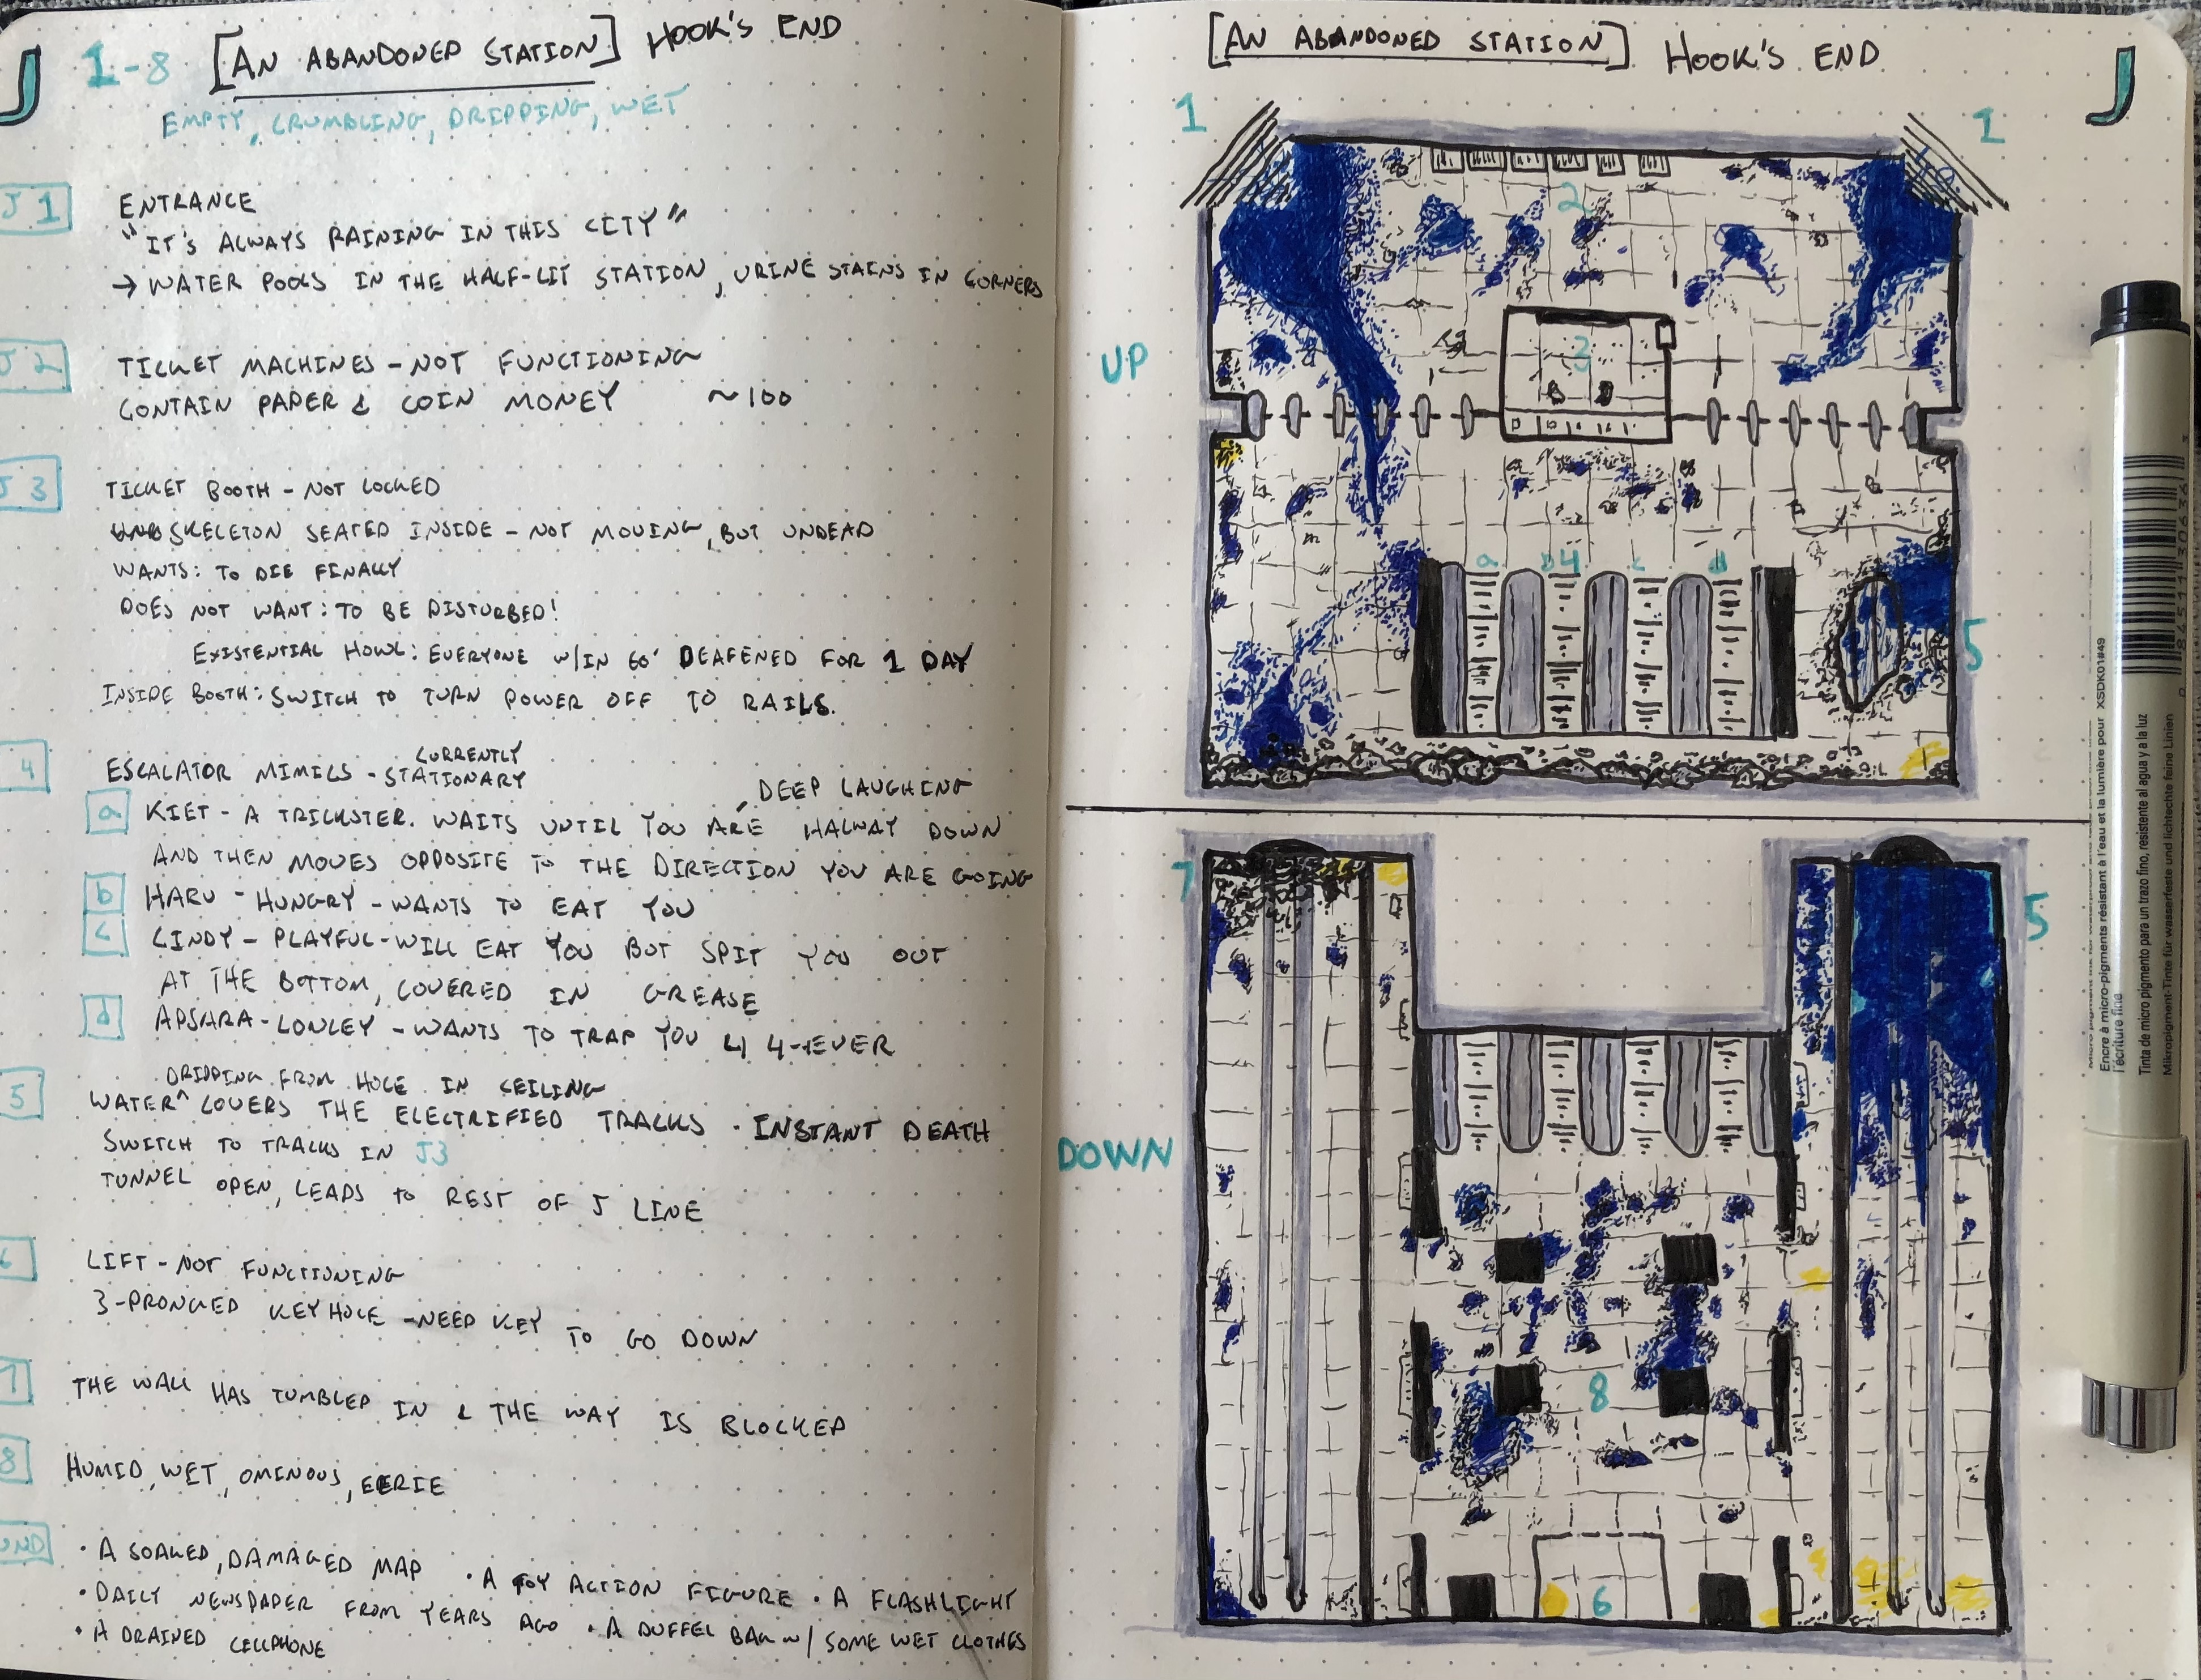 J 1-8 [AN ABANDONED STATION] HOOK'S END
EMPTY, CRUMBLING, DRIPPING, WET
J 1
ENTRANCE
"IT'S ALWAYS RAINING IN THIS CITY"
→ WATER POOLS IN THE HALF-LIT STATION, URINE STAINS IN CORNERS
J 2
TICKET MACHINES - NOT FUNCTIONING
CONTAIN PAPER & COIN MONEY ~100
J 3
TICKET BOOTH - NOT LOCKED
SKELETON SEATED INSIDE - NOT MOVING, BUT UNDEAD
WANTS: TO DIE FINALLY
DOES NOT WANT: TO BE DISTURBED!
EXISTENTIAL HOWL: EVERYONE W/IN 60' DEAFENED FOR 1 DAY
INSIDE BOOTH: SWITCH TO TURN POWER OFF TO RAILS.
4
ESCALATOR MIMICS - CURRENTLY STATIONARY
a KIET - A TRICKSTER. WAITS UNTIL YOU ARE DEEP LAUGHING HALWAY DOWN
AND THEN MOVES OPPOSITE TO THE DIRECTION YOU ARE GOING
b HARU - HUNGRY - WANTS TO EAT YOU
c CINDY - PLAYFUL - WILL EAT YOU BUT SPIT YOU OUT
AT THE BOTTOM, COVERED IN GREASE
d APSARA - LONLEY - WANTS TO TRAP YOU 4-EVER
5
DRIPPING FROM HOLE IN CEILING
WATER ^ COVERS THE ELECTRIFIED TRACKS · INSTANT DEATH
SWITCH TO TRACKS IN J3
TUNNEL OPEN, LEADS TO REST OF J LINE
6
LIFT - NOT FUNCTIONING
3-PRONGED KEYHOLE - NEED KEY TO GO DOWN
7
THE WALL HAS TUMBLED IN & THE WAY IS BLOCKED
8
HUMID, WET, OMINOUS, EERIE
UND
· A SOAKED, DAMAGED MAP · A TOY ACTION FIGURE · A FLASHLIGHT
· DAILY NEWSPAPER FROM YEARS AGO · A DUFFEL BAG W/ SOME WET CLOTHES
· A DRAINED CELLPHONE
[AN ABANDONED STATION] HOOK'S END J
1 1
2
UP
3
a b4 c d
5
7
5
DOWN
8
6
XSDK01#49
Encre à micro-pigments résistant à l'eau et à la lumière pour
l'écriture fine
Tinta de micro pigmento para un trazo fino, resistente al agua y a la luz
Mikropigment-Tinte für wasserfeste und lichtechte feine Linien